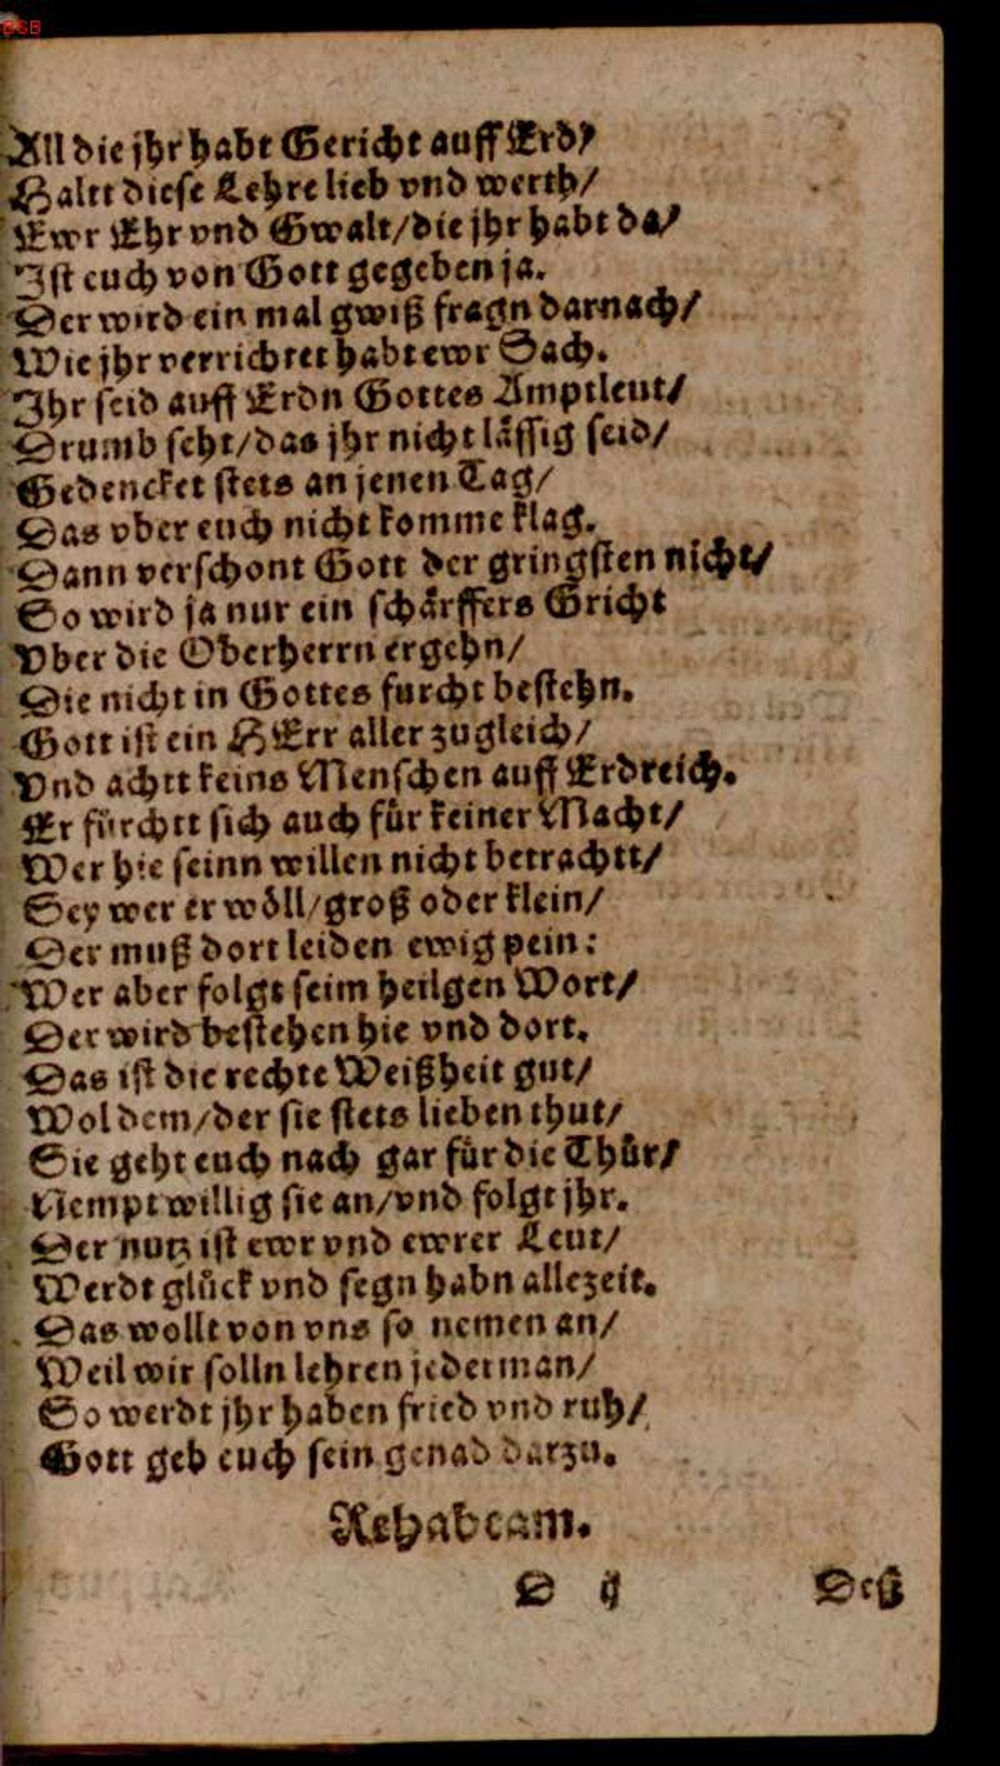 BSB
All die jhr habt Gericht auff Erd/
Haltt diese Lehre lieb vnd werth/
Ewr Ehr vnd Gwalt/die jhr habt da/
Ist euch von Gott gegeben ja.
Der wird ein mal gwiß fragn darnach/
Wie jhr verrichtet habt ewr Sach.
Ihr seid auff Erdn Gottes Amptleut/
Drumb seht/das jhr nicht lässig seid/
Gedencket stets an jenen Tag/
Das vber euch nicht komme klag.
Dann verschont Gott der gringsten nicht/
So wird ja nur ein schärffers Gricht
Vber die Oberherrn ergehn/
Die nicht in Gottes furcht bestehn.
Gott ist ein HErr aller zugleich/
Vnd achtt keins Menschen auff Erdreich.
Er fürchtt sich auch für keiner Macht/
Wer hie seinn willen nicht betrachtt/
Sey wer er wöll/groß oder klein/
Der muß dort leiden ewig pein:
Wer aber folgt seim heilgen Wort/
Der wird bestehen hie vnd dort.
Das ist die rechte Weißheit gut/
Wol dem/der sie stets lieben thut/
Sie geht euch nach gar für die Thür/
Nempt willig sie an/vnd folgt jhr.
Der nutz ist ewr vnd ewrer Leut/
Werdt glück vnd segn habn allezeit.
Das wollt von vns so nemen an/
Weil wir solln lehren jederman/
So werdt jhr haben fried vnd ruh/
Gott geb euch sein genad darzu.
Rehabeam.
D ij Deß